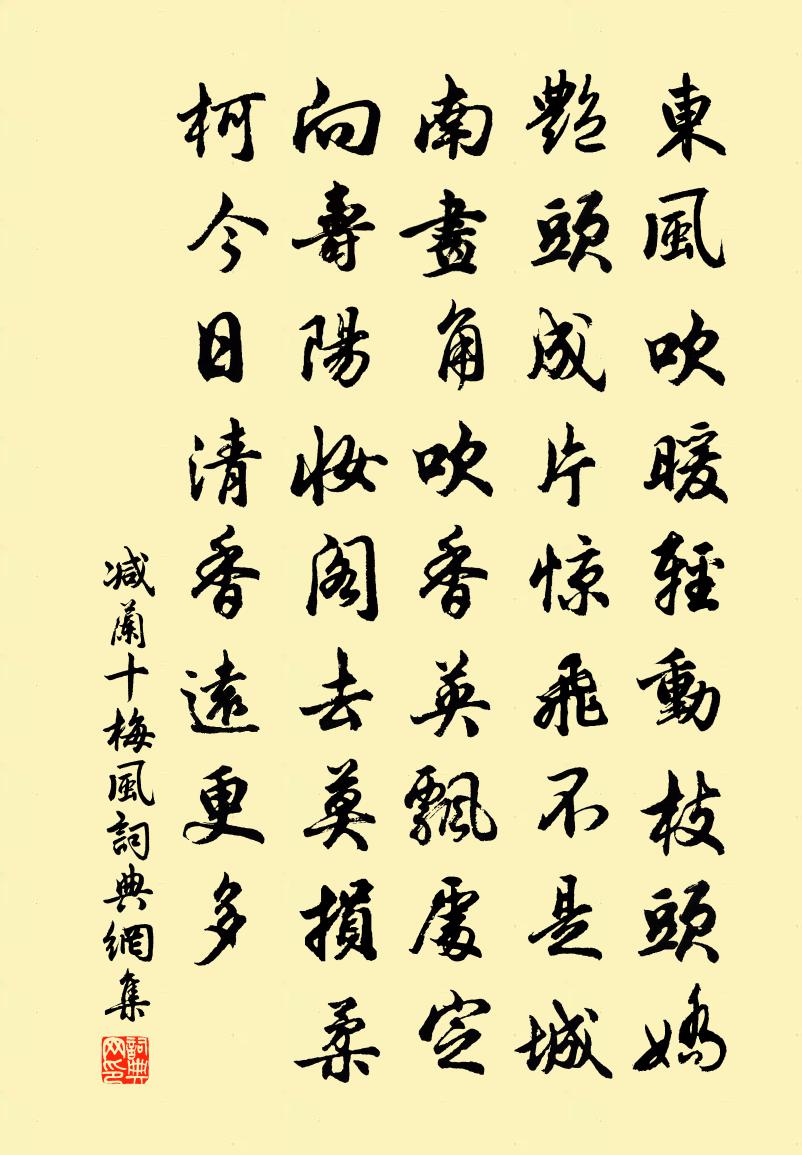 東風吹暖輕動枝頭嬌
艷頭成片惊飛不是城
南畫角吹香英飄處定
向壽陽妝閣去莫損柔
柯今日清香遠更多
减蘭十梅風詞典網集
詞典网印